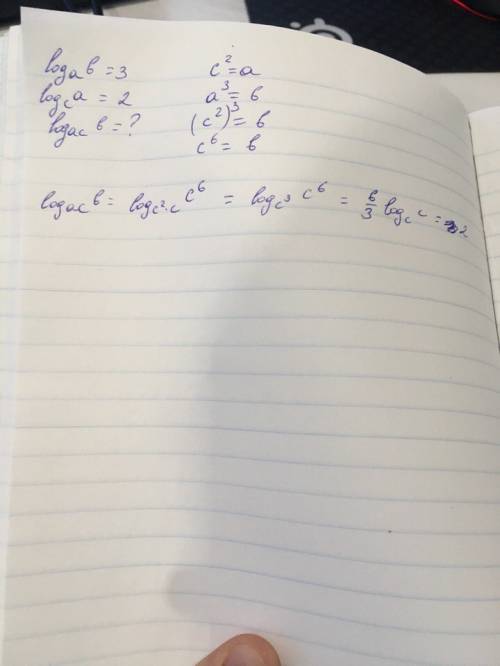 log_a b = 3 c² = a
log_c a = 2 a³ = b
log_ac b = ? (c²)³ = b
c⁶ = b
log_ac b = log_c²·c c⁶ = log_c³ c⁶ = 6/3 log_c c = 2